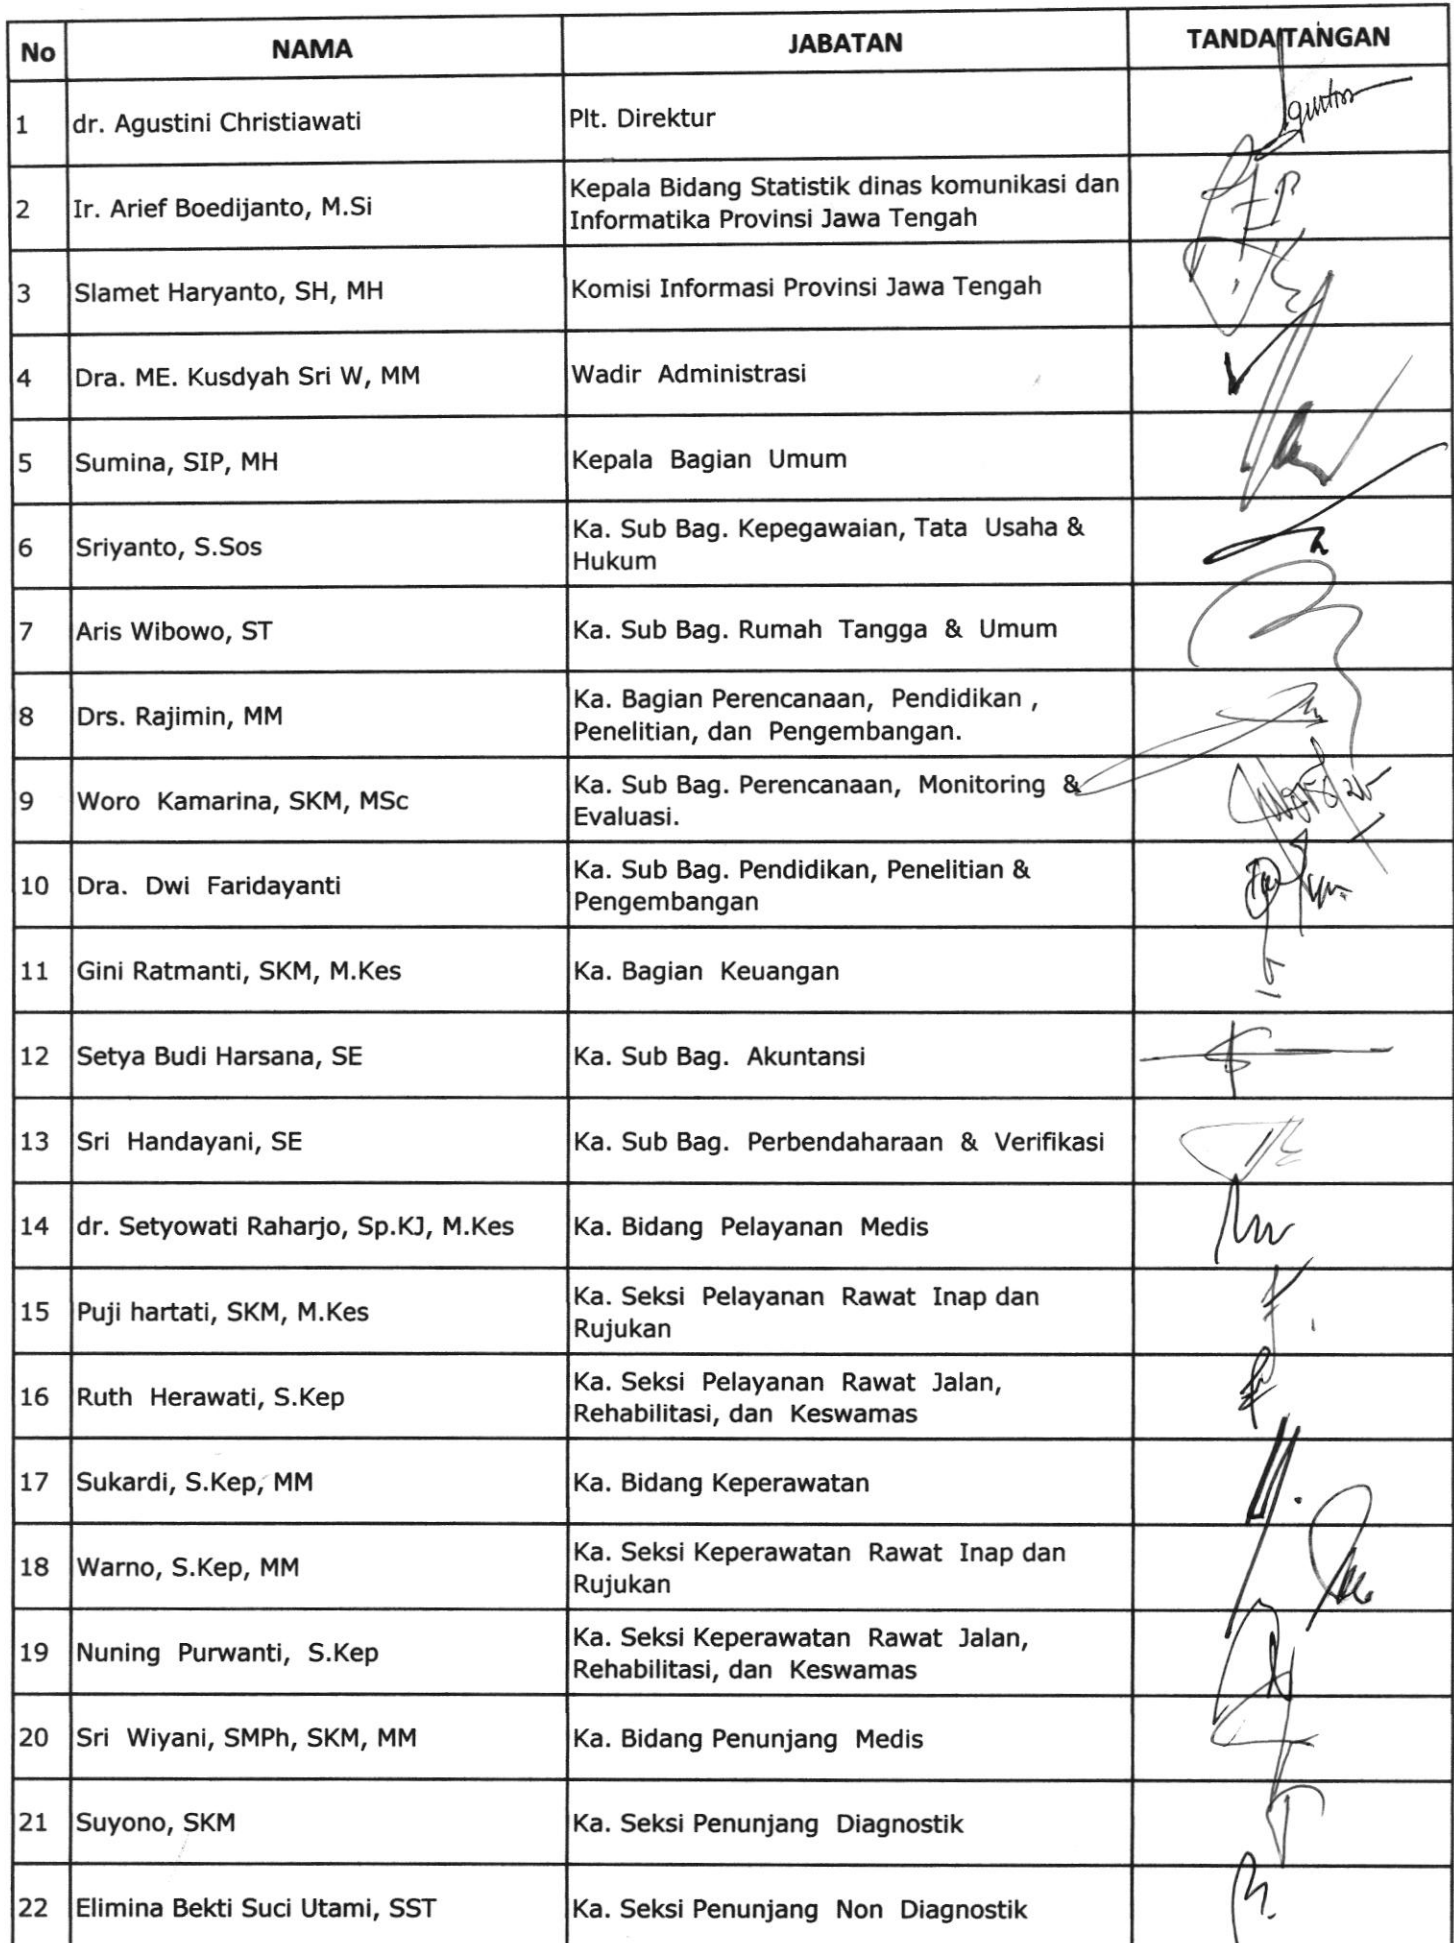 No NAMA JABATAN TANDA TANGAN
1 dr. Agustini Christiawati Plt. Direktur
2 Ir. Arief Boedijanto, M.Si Kepala Bidang Statistik dinas komunikasi dan
Informatika Provinsi Jawa Tengah
3 Slamet Haryanto, SH, MH Komisi Informasi Provinsi Jawa Tengah
4 Dra. ME. Kusdyah Sri W, MM Wadir Administrasi
5 Sumina, SIP, MH Kepala Bagian Umum
6 Sriyanto, S.Sos Ka. Sub Bag. Kepegawaian, Tata Usaha &
Hukum
7 Aris Wibowo, ST Ka. Sub Bag. Rumah Tangga & Umum
8 Drs. Rajimin, MM Ka. Bagian Perencanaan, Pendidikan ,
Penelitian, dan Pengembangan.
9 Woro Kamarina, SKM, MSc Ka. Sub Bag. Perencanaan, Monitoring &
Evaluasi.
10 Dra. Dwi Faridayanti Ka. Sub Bag. Pendidikan, Penelitian &
Pengembangan
11 Gini Ratmanti, SKM, M.Kes Ka. Bagian Keuangan
12 Setya Budi Harsana, SE Ka. Sub Bag. Akuntansi
13 Sri Handayani, SE Ka. Sub Bag. Perbendaharaan & Verifikasi
14 dr. Setyowati Raharjo, Sp.KJ, M.Kes Ka. Bidang Pelayanan Medis
15 Puji hartati, SKM, M.Kes Ka. Seksi Pelayanan Rawat Inap dan
Rujukan
16 Ruth Herawati, S.Kep Ka. Seksi Pelayanan Rawat Jalan,
Rehabilitasi, dan Keswamas
17 Sukardi, S.Kep, MM Ka. Bidang Keperawatan
18 Warno, S.Kep, MM Ka. Seksi Keperawatan Rawat Inap dan
Rujukan
19 Nuning Purwanti, S.Kep Ka. Seksi Keperawatan Rawat Jalan,
Rehabilitasi, dan Keswamas
20 Sri Wiyani, SMPh, SKM, MM Ka. Bidang Penunjang Medis
21 Suyono, SKM Ka. Seksi Penunjang Diagnostik
22 Elimina Bekti Suci Utami, SST Ka. Seksi Penunjang Non Diagnostik